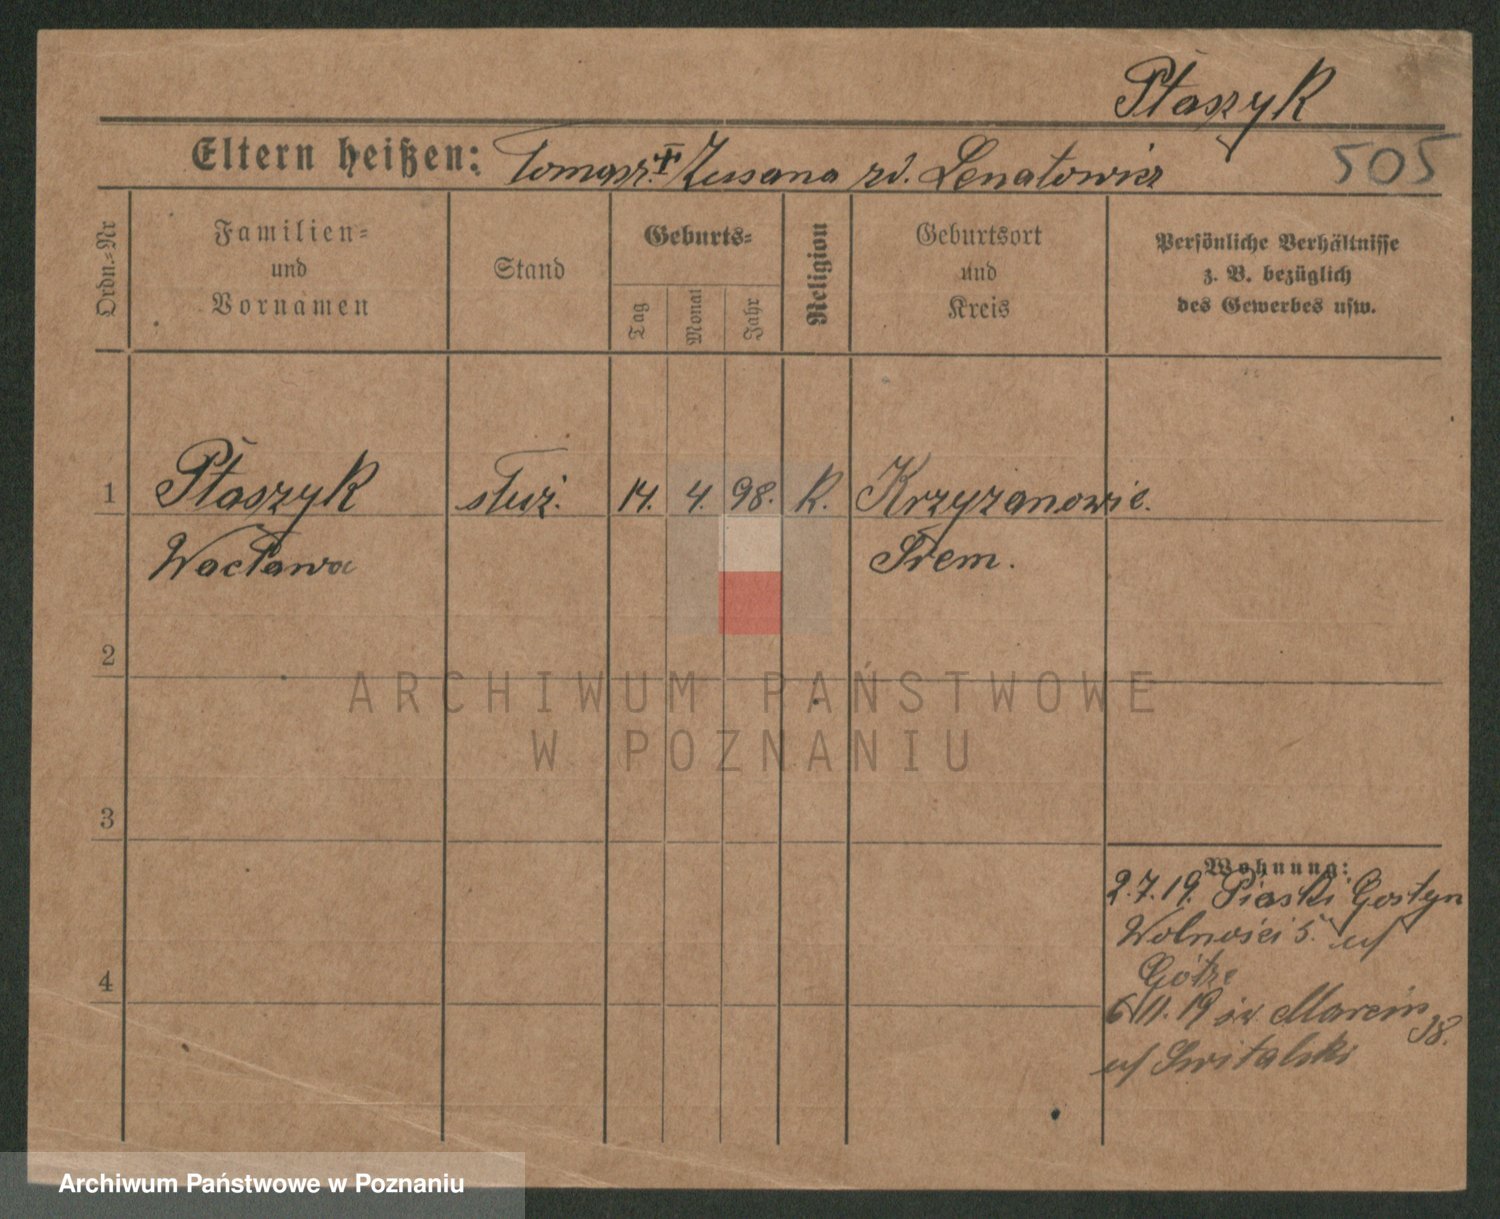 Ptaszyk
Eltern heißen: Tomasz + Zusana rd. Lenatowicz
505
Ordn.-Nr
Familien-
und
Vornamen
Stand
Geburts-
Tag
Monat
Jahr
Religion
Geburtsort
und
Kreis
Persönliche Verhältnisse
z. B. bezüglich
des Gewerbes usw.
1 Ptaszyk służ. 14. 4. 98. K. Krzyżanowic.
Wacława Śrem.
2
ARCHIWUM PAŃSTWOWE
W POZNANIU
3
Wohnung:
2.7.19. Piaski Gostyn
Wolności 5. u/
Götze
4
6/11.19 św. Marcin 38.
u/ Switalski
Archiwum Państwowe w Poznaniu